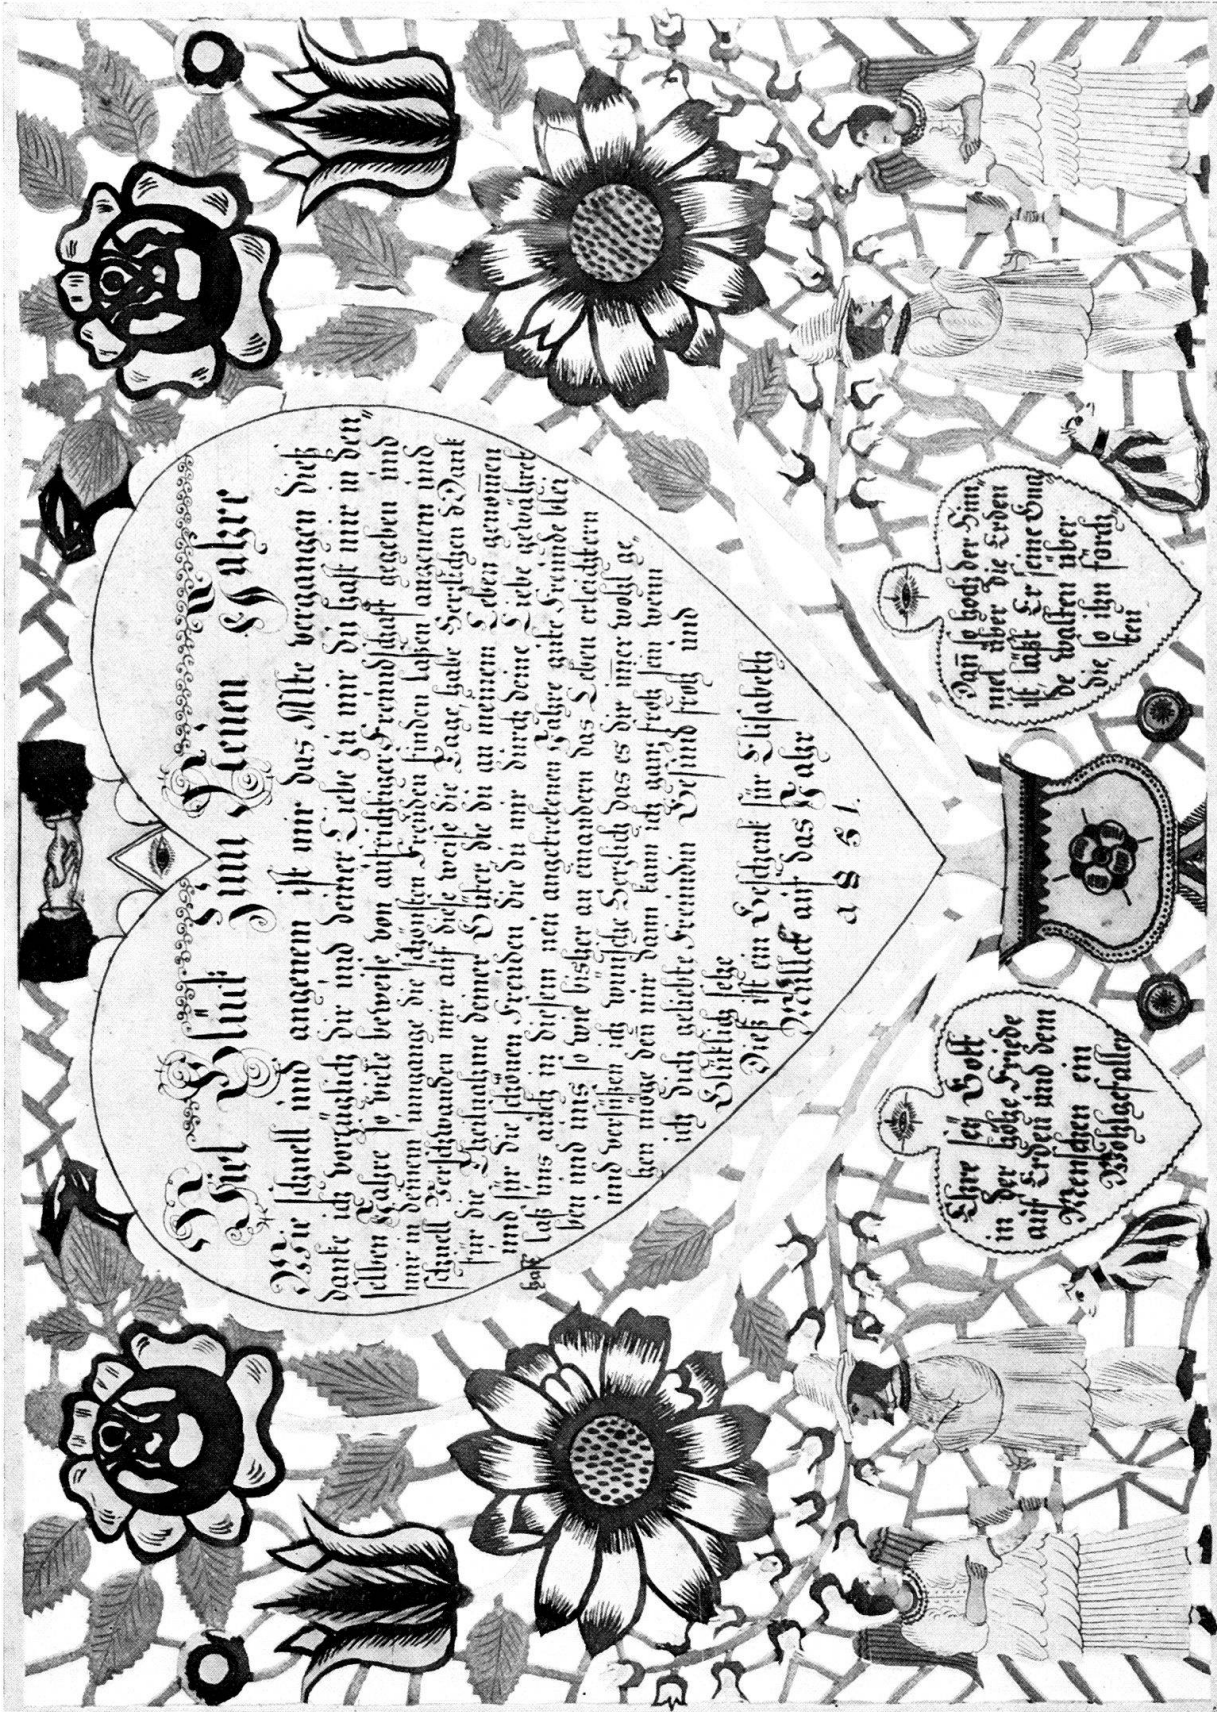 Viel Glück Zum Neuen Jahre
Wie schnell und angenem ist mir das Alte vergangen dieß
danke ich vorzüglich dir und deiner Liebe zu mir du hast mir in den„
selben Jahre so viele beweise von aufrichtiger Freundschaft gegeben und
mir in deinem umgange die schönsten Freuden finden laßen angenem und
schnell Verschwanden mir auf diese weise die Tage, habe Herzlichen Dank
für die Theilnahme deiner Güter die du an meinem Leben genom̅en
und für die schönen Freuden die du mir durch deine Liebe gewähret
hast laß uns auch in diesem neu angetretenen Jahre gute Freunde blei„
ben und uns so wie bisher an einandern das Leben erleichtern
und versüßen ich wünsche Herzlich das es dir im̅er wohl ge„
hen möge den̅ nur dann kann ich ganz froh sein wenn
ich dich geliebte Freindin Gesund froh und
Glüklich sehe
Dieß ist ein Geschenk für Elisabeth
Mülleck auf das Jahr
a 8 8 1.
Ehre seÿ Gott
in der höhe Friede
auf Erden und dem
Menschen ein
Wohlgefallen
Dan̅ so hoch der Him„
mel über die Erden
ist, läßt Er seine Gna„
de walten über
die, so ihn förch„
ten